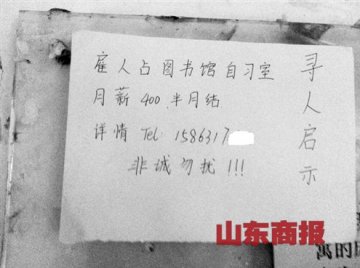 雇人占图书馆自习室
月薪400 半月结
详情 Tel: 1586317
非诚勿扰!!!
寻人启示
山东商报
寓的